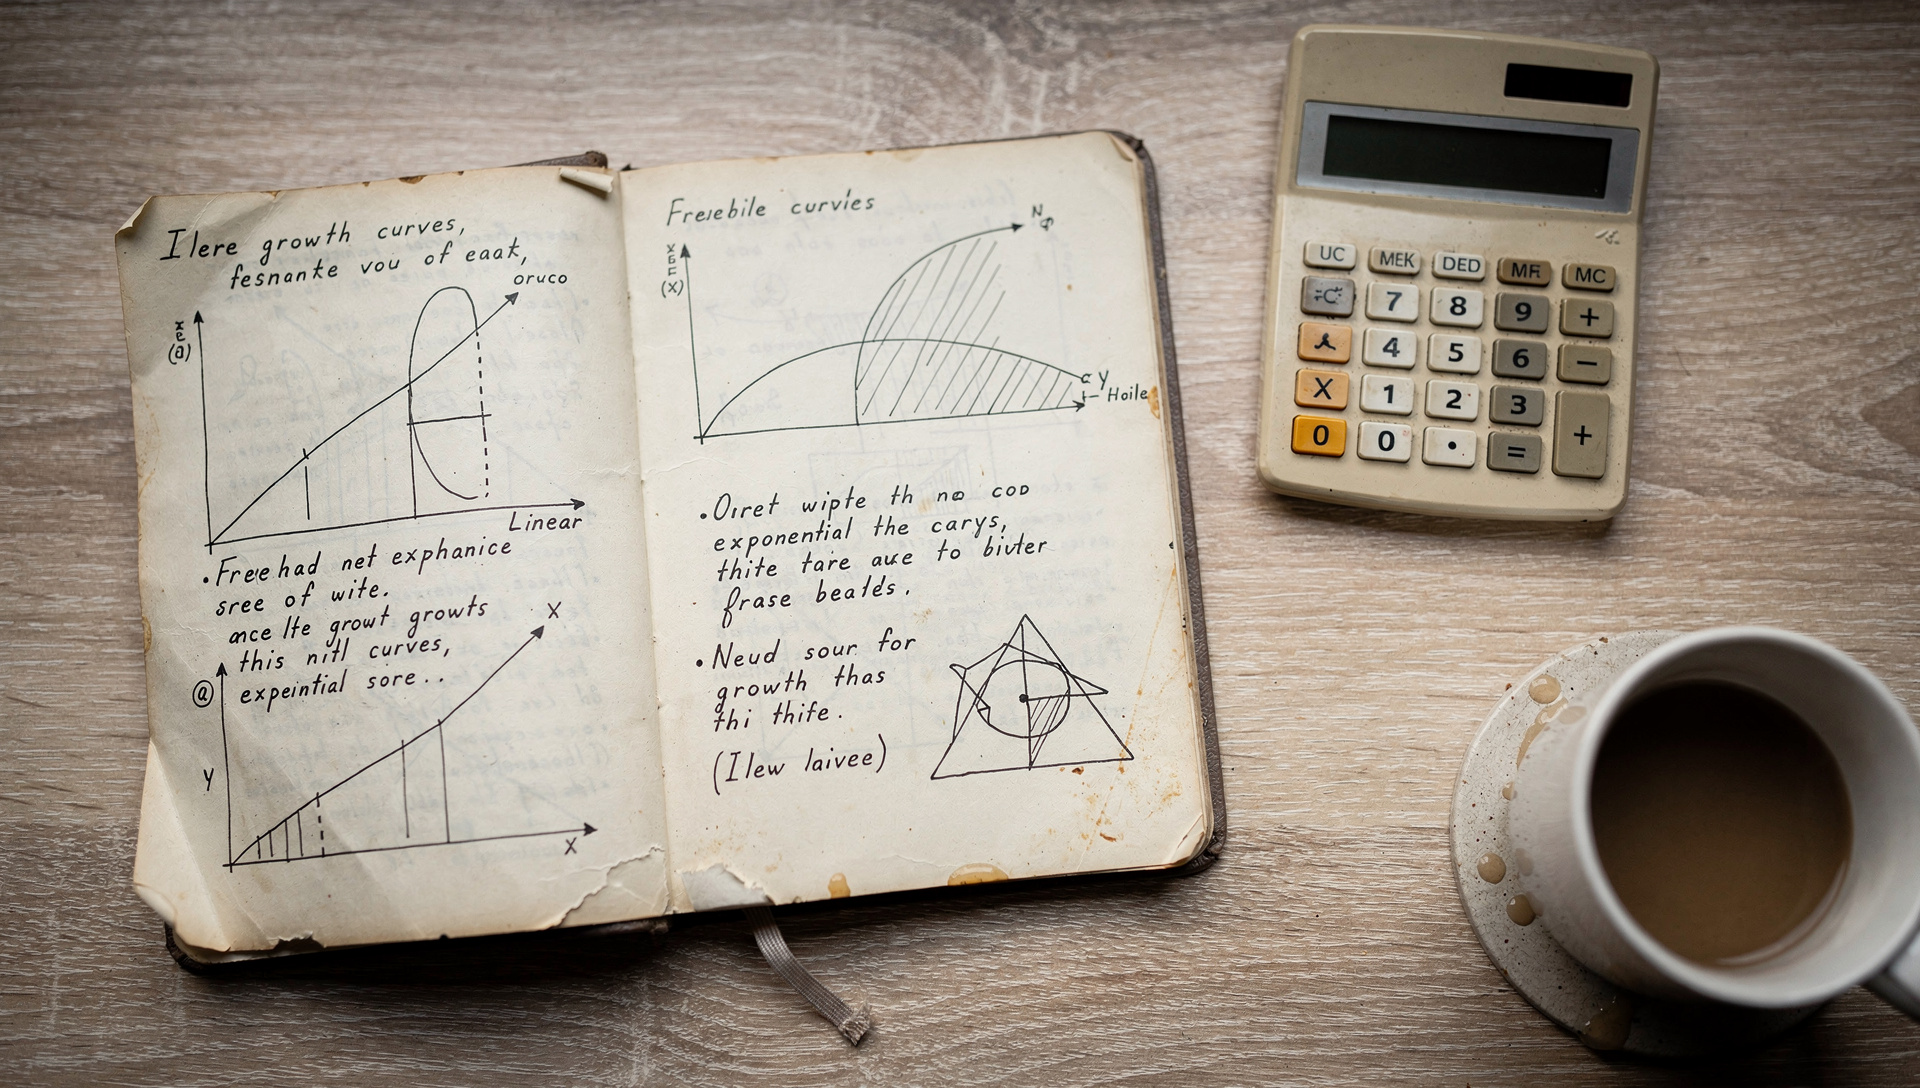 Ilere growth curves,
fesnante vou of eaat,
oruco
Linear
• Freehad net exphanice
sree of wite.
ance lte growt growts
this nitl curves,
expeintial sore..
X
@
Y
X
Freiebile curvies
(X)
N
a y
Hoile
• Oiret wipte th no cod
exponential the carys,
thite tare aue to bivter
frase beatds.
• Neud sour for
growth thas
thi thife.
(Ilew laivee)
UC MEK DED MR MC
7 8 9 +
4 5 6 −
X 1 2 3
0 0 . = +